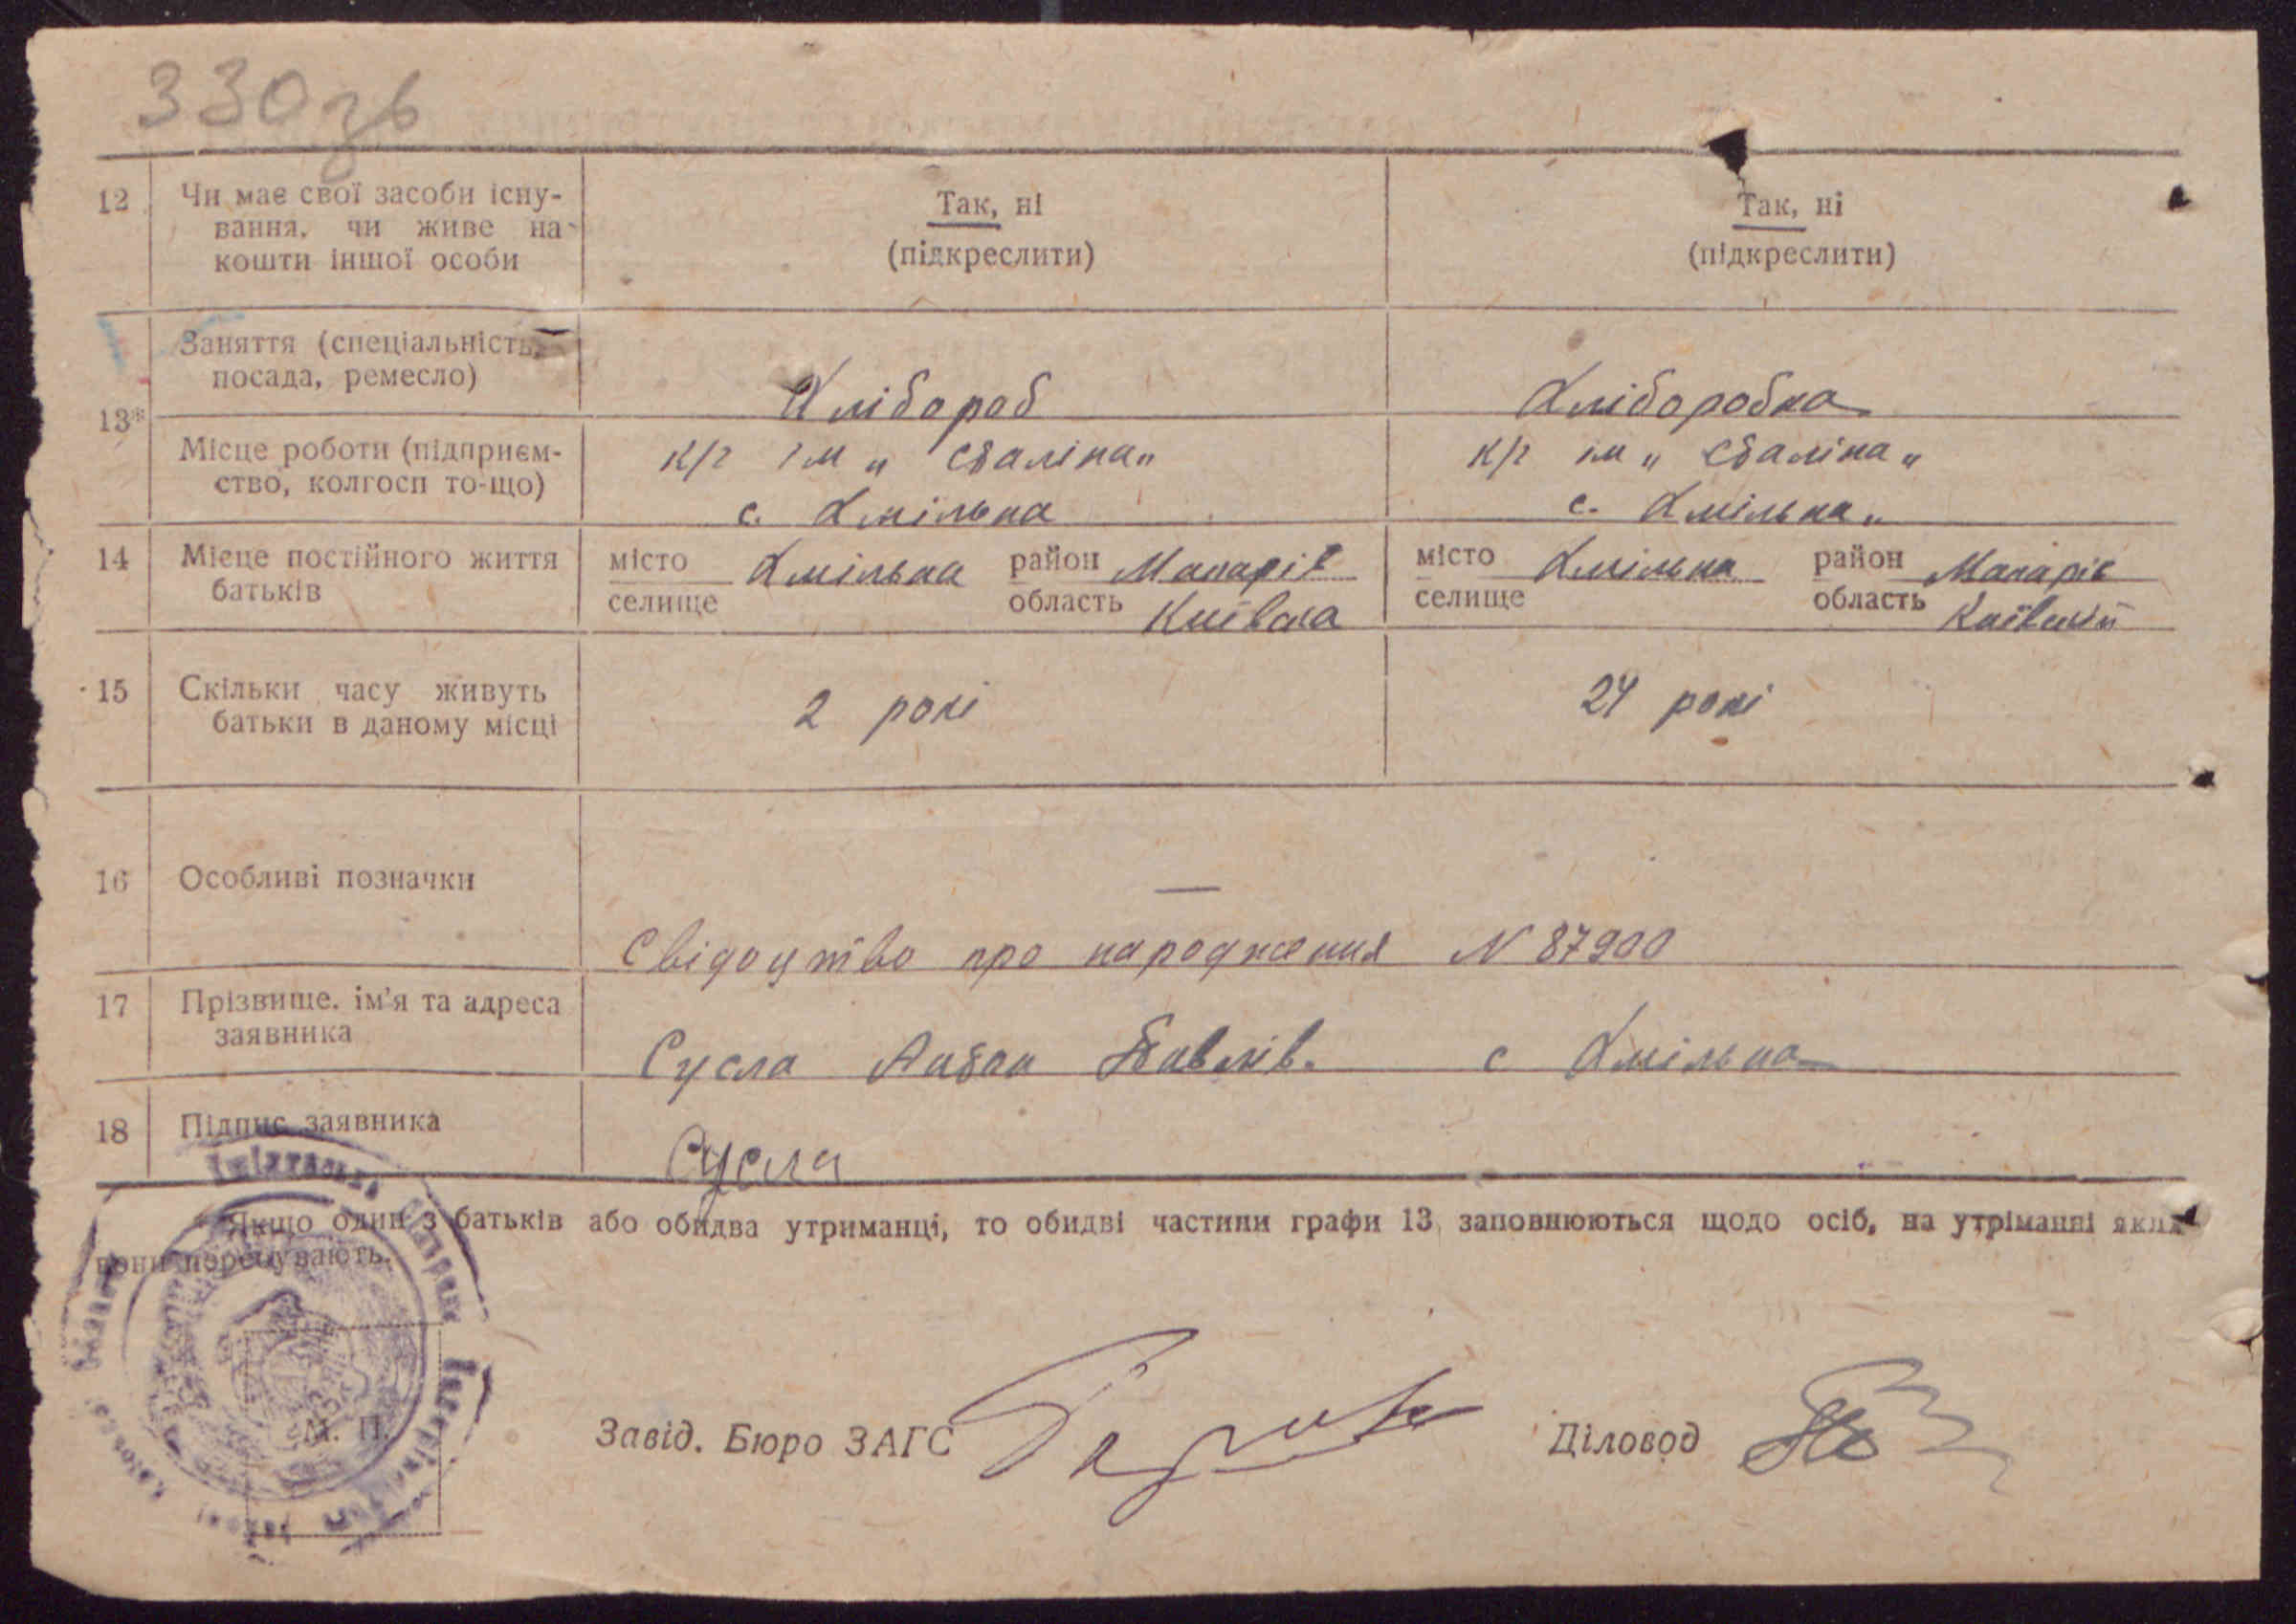 330зв
12 Чи має свої засоби існу-
вання, чи живе на
кошти іншої особи
Так, ні
(підкреслити)
Так, ні
(підкреслити)
13*
Заняття (спеціальність,
посада, ремесло)
Хлібороб
Хліборобка
Місце роботи (підприєм-
ство, колгосп то-що)
к/г ім „ Сталіна„
с. Хмільна
к/г ім „ Сталіна„
с. Хмільна„
14 Місце постійного життя
батьків
місто
селище
Хмільна
район Макарів
область Київска
місто
селище
Хмільна
район Макарів
область
15 Скільки часу живуть
батьки в даному місці
2 рокі
24 рокі
16 Особливі позначки
—
Свідоцтво про народження N 87900
17 Прізвище. ім'я та адреса
заявника
Сусла Антон Павлів. с Хмільна
18 Підпис заявника
Сусла
* Якщо один з батьків або обидва утриманці, то обидві частини графи 13 заповнюються щодо осіб, на утріманні яких
вони перебувають.
М. П.
Завід. Бюро ЗАГС
Діловод